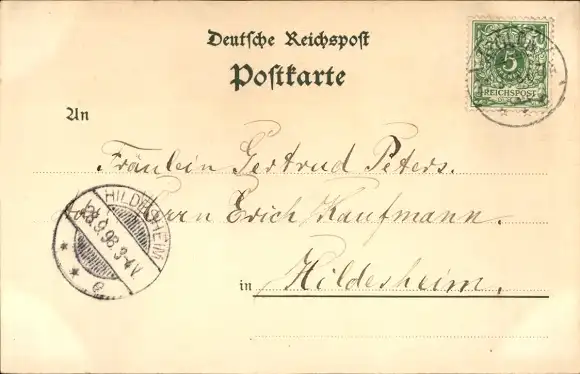 Deutsche Reichspost
Postkarte
5
REICHSPOST
An
Fräulein Gertrud Peters.
Herrn Erich Kaufmann.
in Hildesheim.
HILDESHEIM
23.9.98. 3-4V.
e